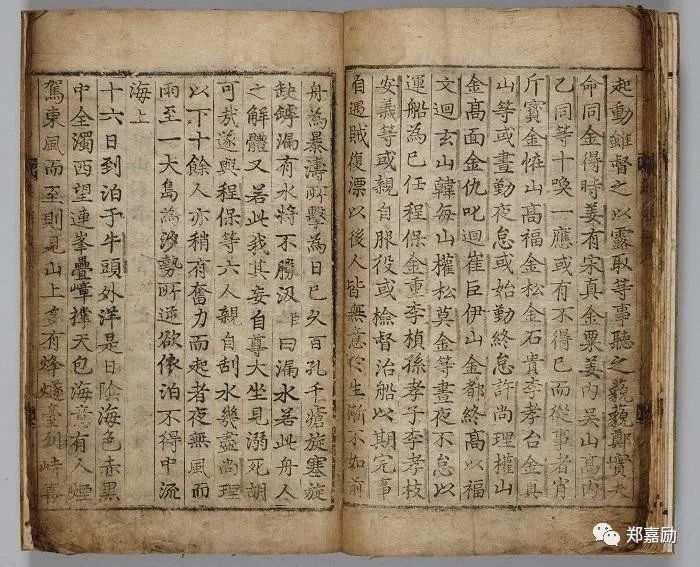 起動雖督之以露取等事聽之藐藐鄭實夫
命同金得時姜有宋真金粟姜內吳山高內
乙同等十喚一應或有不得已而從事者肖
斤寶金怍山高福金松金石貴李孝台金真
山等或晝勤夜怠或始勤終怠許尚理權山
金高面金仇叱迴崔巨伊山金都終高以福
文迴玄山韓每山權松莫金等晝夜不怠以
運船為已任程保金重李楨孫孝子李孝枝
安義等或親自服役或檢督治船以期完事
自遇賊復漂以後人皆無意於生漸不如前
舟為暴濤所擊為日已久百孔千瘡旋塞旋
缺罅漏有水將不勝汲曰漏水若此舟人
之解體又若此我其妄自尊大坐見溺死胡
可哉遂與程保等六人親自刮水幾盡尚理
以下十餘人亦稍有奮力而起者夜無風而
雨至一大島為汐勢所逆欲依泊不得中流
海上
十六日到泊于牛頭外洋是日陰海色赤黑
中全濁西望連峯疊嶂撑天包海意有人煙
駕東風而至則見山上多有烽燧臺列峙喜
郑嘉励